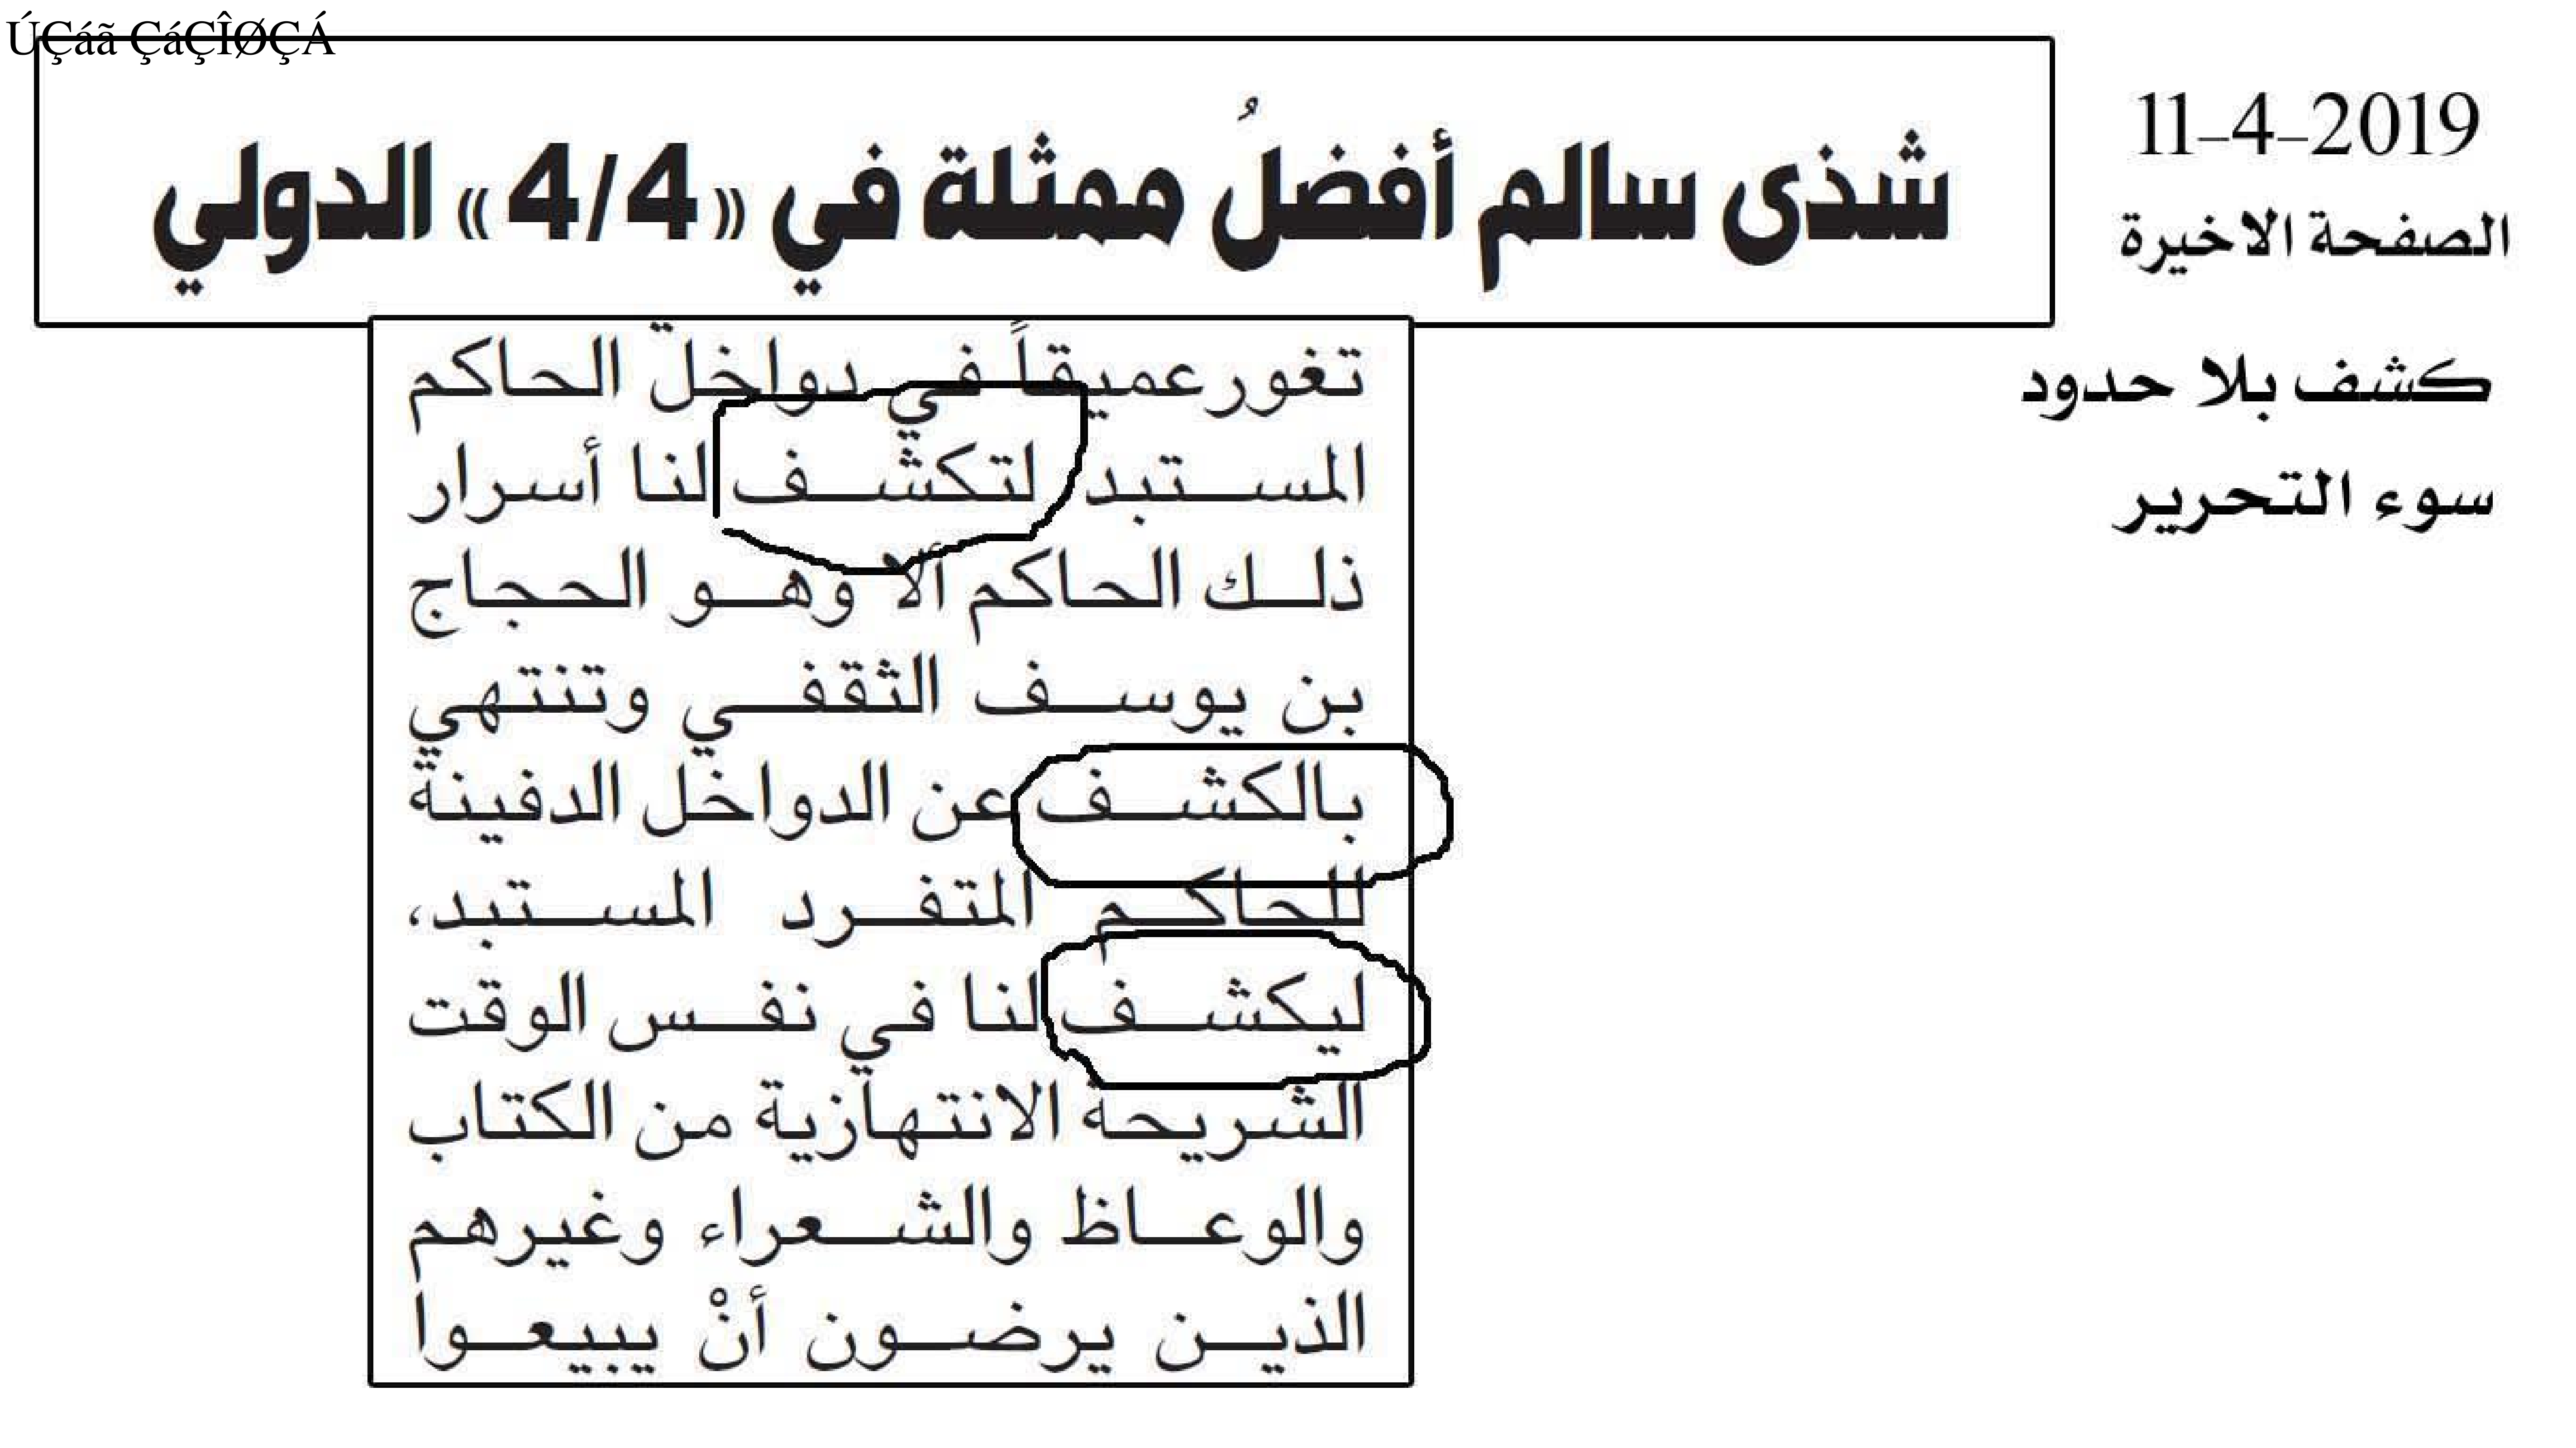 ÚÇáã ÇáÇÎØÇÁ
شذى سالم أفضلُ ممثلة في «4/4» الدولي
11-4-2019
الصفحة الاخيرة
كشف بلا حدود
سوء التحرير
تغور عميقاً في دواخل الحاكم
المستبد لتكشف لنا أسرار
ذلك الحاكم ألا وهو الحجاج
بن يوسف الثقفي وتنتهي
بالكشف عن الدواخل الدفينة
للحاكم المتفرد المستبد،
ليكشف لنا في نفس الوقت
الشريحة الانتهازية من الكتاب
والوعاظ والشعراء وغيرهم
الذين يرضون أنْ يبيعوا